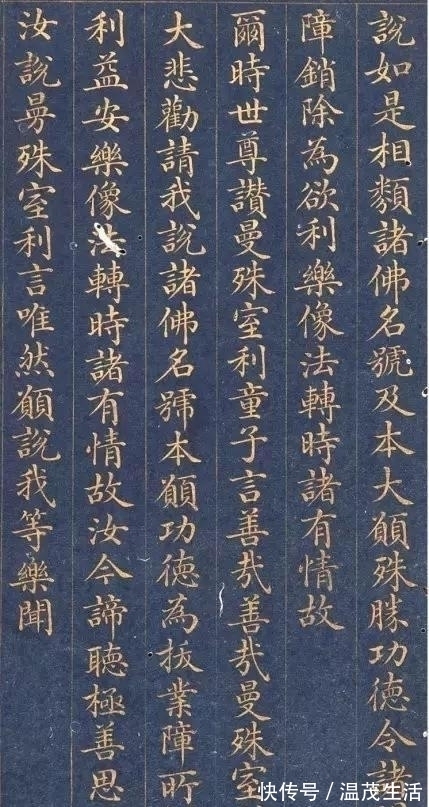 說如是相類諸佛名號及本大願殊勝功德令諸
障銷除為欲利樂像法轉時諸有情故
爾時世尊讚曼殊室利童子言善哉善哉曼殊室
大悲勸請我說諸佛名號本願功德為拔業障所
利益安樂像法轉時諸有情故汝今諦聽極善思
汝說曼殊室利言唯然願說我等樂聞
快传号 / 温茂生活